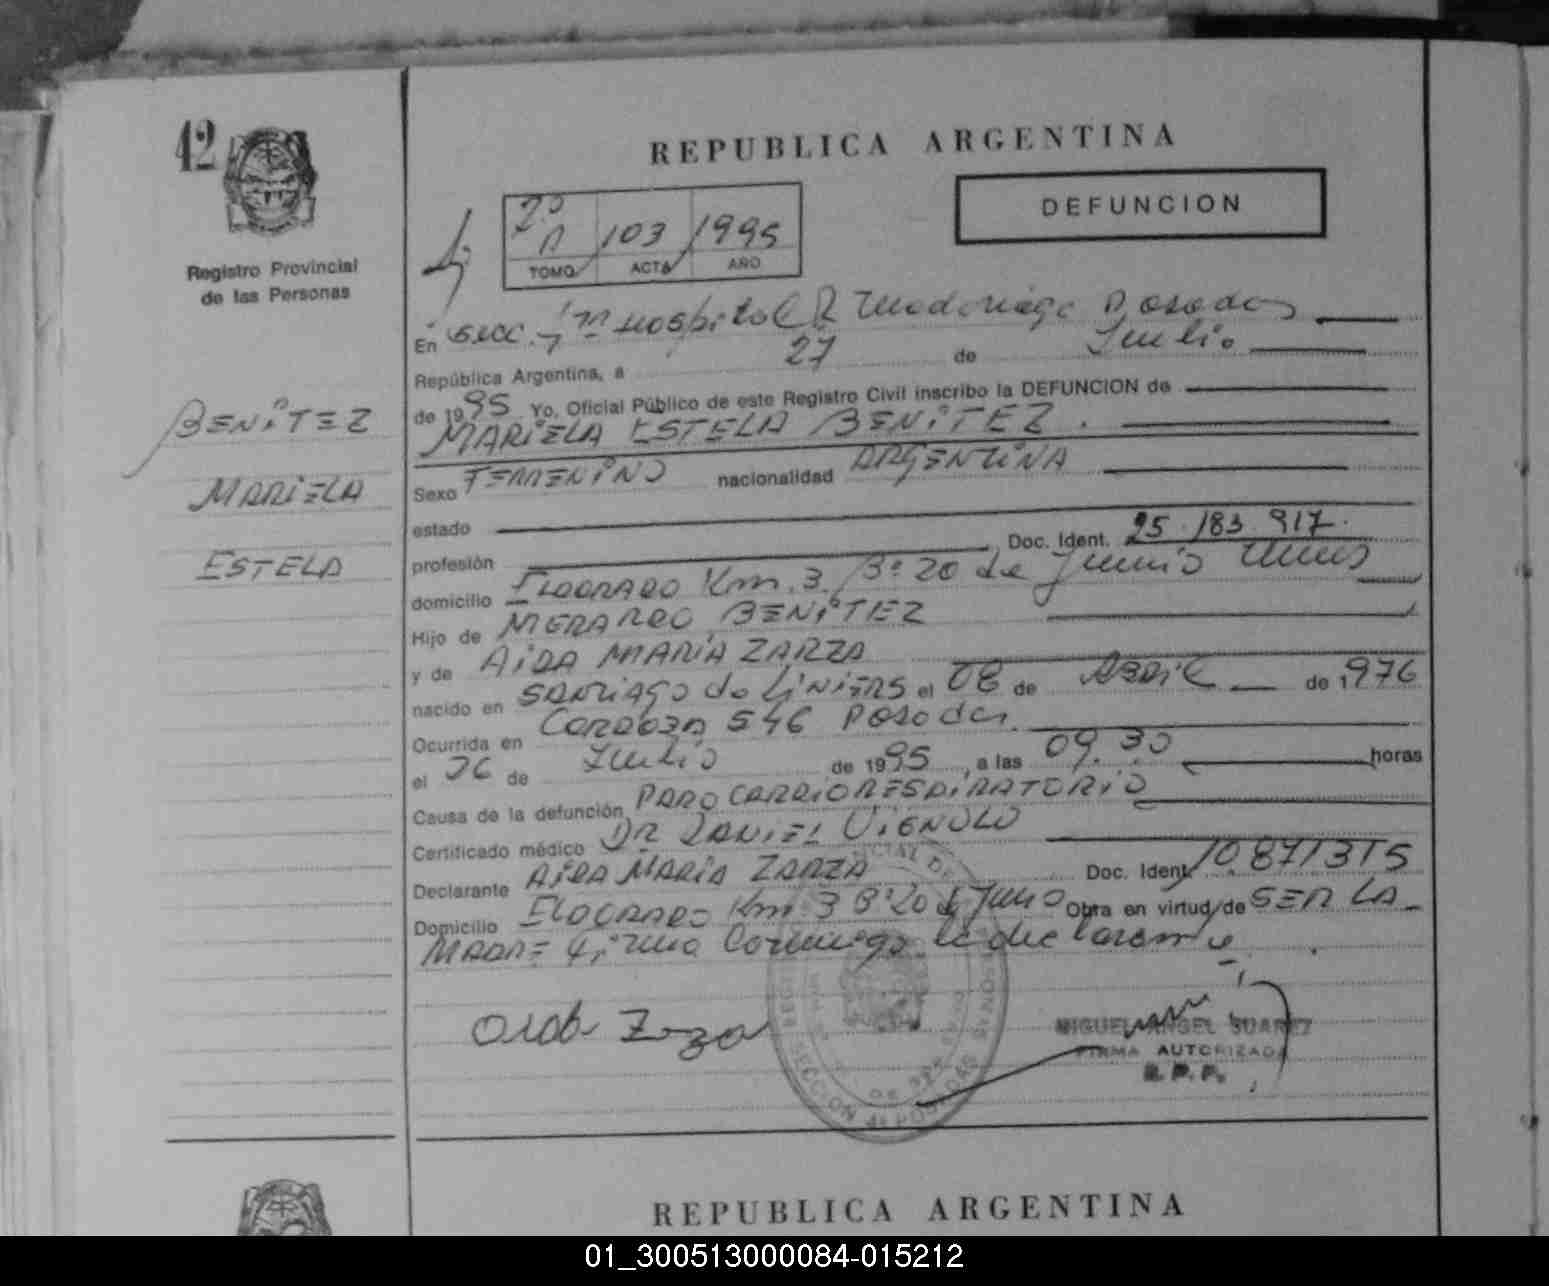 42
Registro Provincial
de las Personas
BENÍTEZ
MARIELA
ESTELA
REPUBLICA ARGENTINA
DEFUNCION
2º A 103 1995
TOMO ACTA AÑO
En Secc. Hospital R Madariaga Posadas
República Argentina, a 27 de Julio
de 1995 Yo, Oficial Público de este Registro Civil inscribo la DEFUNCION de
MARIELA ESTELA BENITEZ.
Sexo FEMENINO nacionalidad ARGENTINA
estado
profesión Doc. Ident. 25.183.917.
domicilio ELDORADO Km. 3 Bº 20 de Junio
Hijo de MERARDO BENITEZ
y de AIDA MARIA ZARZA
nacido en SANTIAGO de LINIERS el 08 de ABRIL de 1976
Ocurrida en CORDOBA 546 Posadas.
el 26 de Julio de 1995, a las 09.30 horas
Causa de la defunción PARO CARDIORESPIRATORIO
Certificado médico DR DANIEL VIGNOLO
Declarante AIDA MARIA ZARZA Doc. Ident. 10.871315
Domicilio ELDORADO Km. 3 Bº 20 de Junio Obra en virtud de SER LA
MADRE firma conmigo la declarante.
Aida Zarza
MIGUEL ANGEL SUAREZ
FIRMA AUTORIZADA
R. P. P.
SECCION 4a POSADAS
REPUBLICA ARGENTINA
01_300513000084-015212